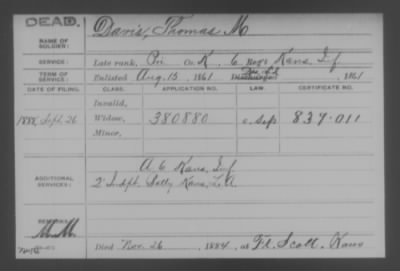 DEAD.
NAME OF SOLDIER: Davis, Thomas M
SERVICE: Late rank, Pri Co. K, 6 Reg't Kans, Inf
TERM OF SERVICE: Enlisted Aug. 15, 1861 Discharged 1861
DATE OF FILING. CLASS. APPLICATION NO. LAW. CERTIFICATE NO.
Invalid,
1888, Sept. 26 Widow, 380880 837.011
Minor,
A. 6 Kans, Inf
ADDITIONAL SERVICES: 2" Indpt. Batty Kans, L.A.
REMARKS:
Died Nov. 26, 1884, at Ft. Scott. Kans